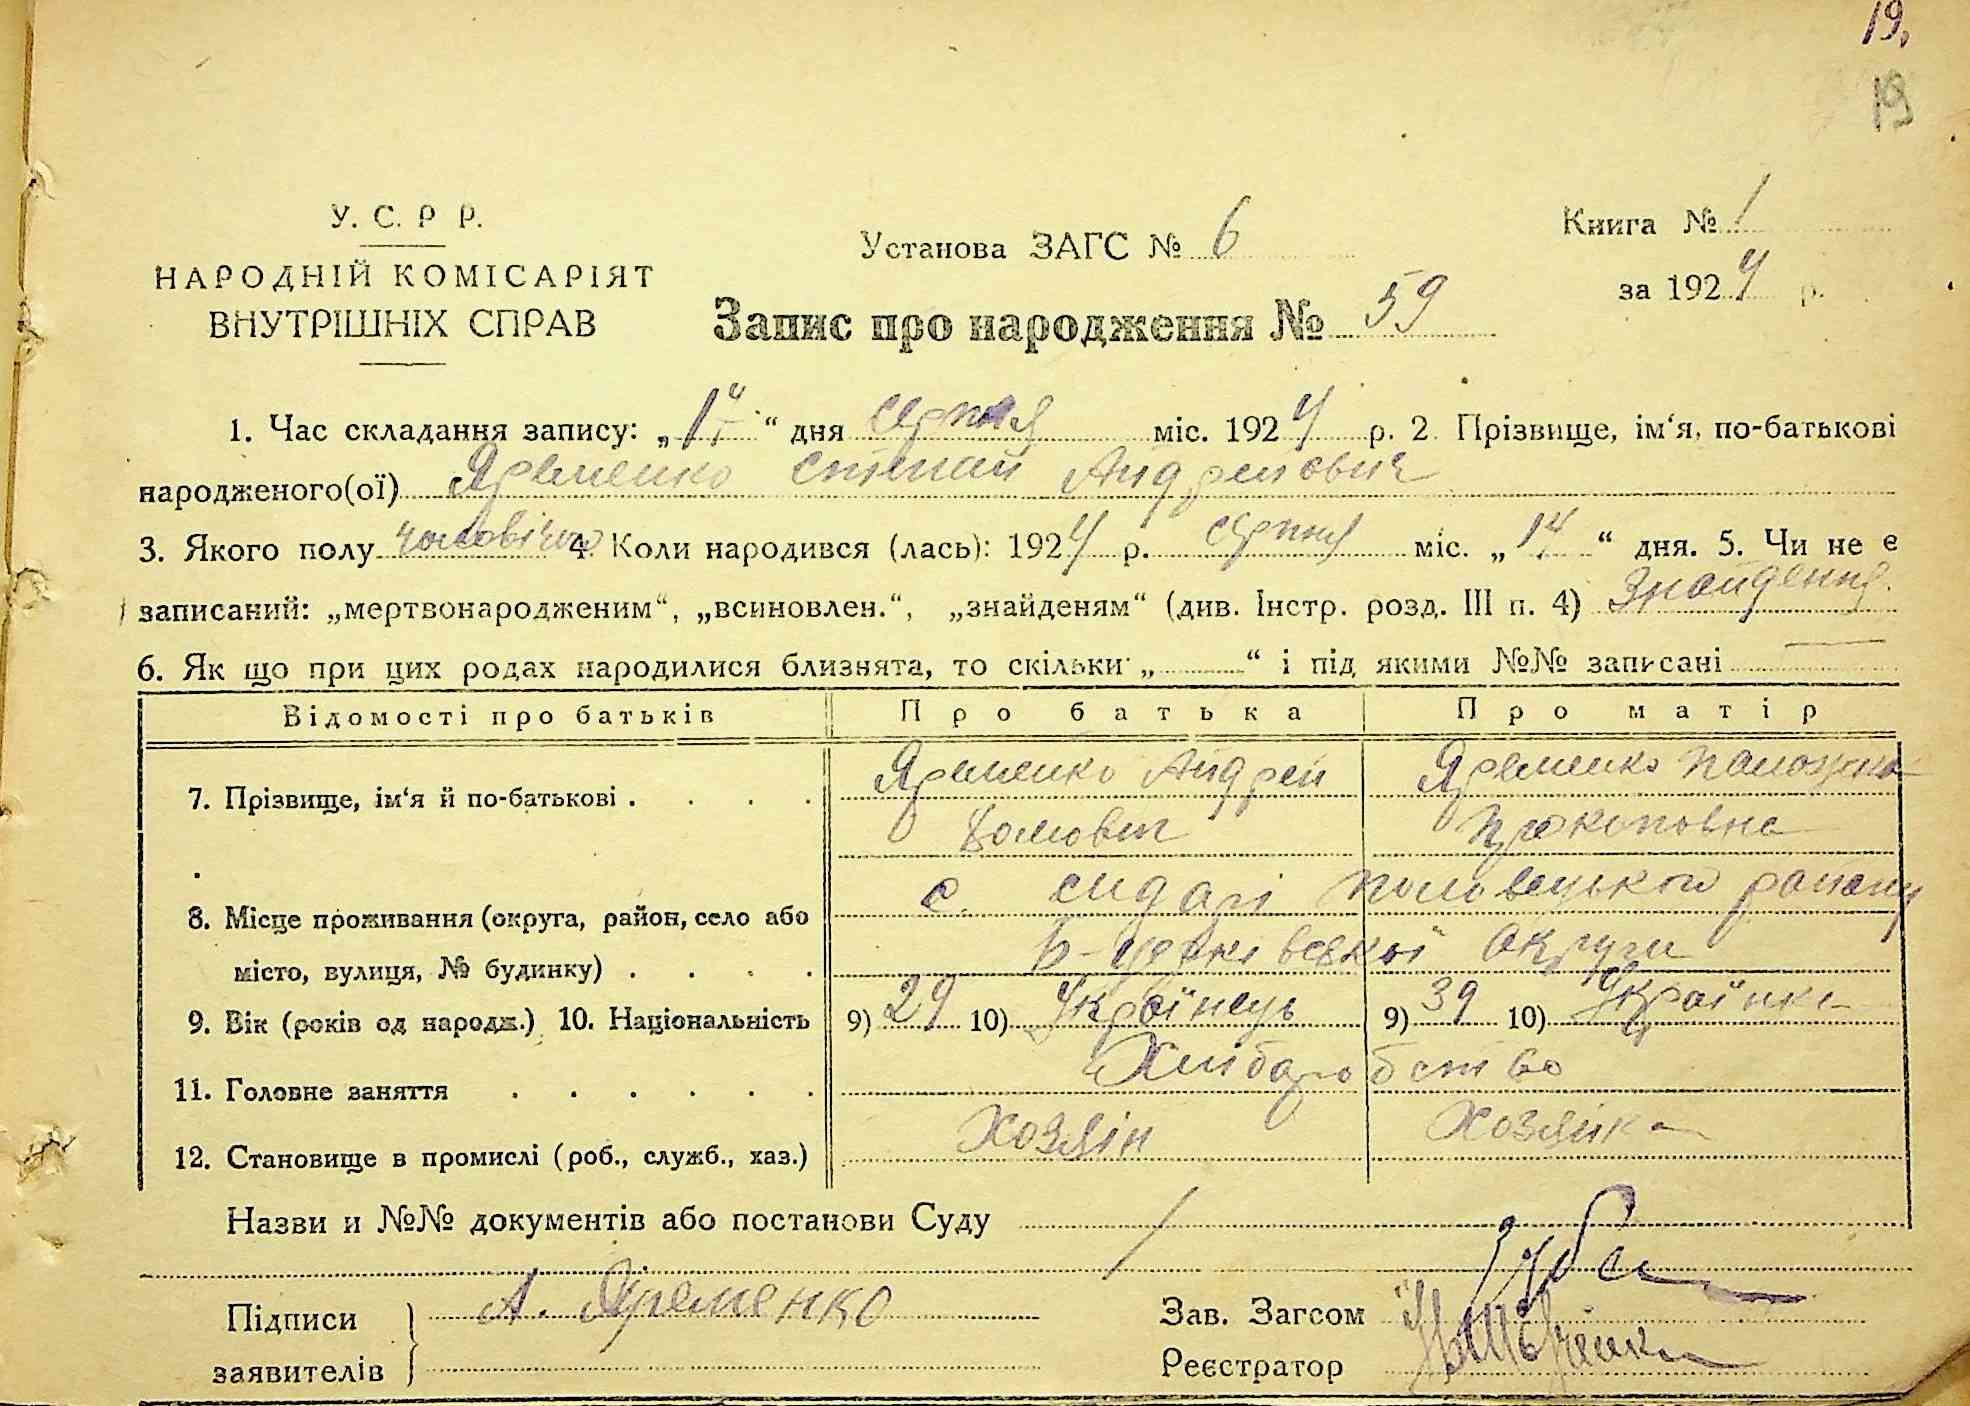 19.
19
У. С. Р Р.
НАРОДНІЙ КОМІСАРІЯТ
ВНУТРІШНІХ СПРАВ
Установа ЗАГС № 6
Книга № 1
за 1924 р.
Запис про народження № 59
1. Час складання запису: „ “ дня Серпня міс. 1924 р. 2. Прізвище, ім‘я, по-батькові
народженого(ої) Яременко Степан Андреіович
3. Якого полу чоловічого 4. Коли народився (лась): 1924 р. серпня міс. „14“ дня. 5. Чи не є
записаний: „мертвонародженим“, „всиновлен.“, „знайденям“ (див. Інстр. розд. III п. 4) Знайдення.
6. Як що при цих родах народилися близнята, то скільки „ “ і під якими №№ записані —
Відомості про батьків Про батька Про матір
7. Прізвище, ім‘я й по-батькові . . . . Яременко Андрей Яременко
Прокоповна
8. Місце проживання (округа, район, село або с. району
місто, вулиця, № будинку) . . . . Б-Церківської Округи
9. Вік (років од народж.) 10. Національність 9) 29 10) Українець 9) 39 10) Українка
11. Головне заняття . . . . . . Хліборобство
12. Становище в промислі (роб., служб., хаз.) Хозяін Хозяйка
Назви и №№ документів або постанови Суду
Підписи А. Яременко Зав. Загсом
заявителів Реєстратор